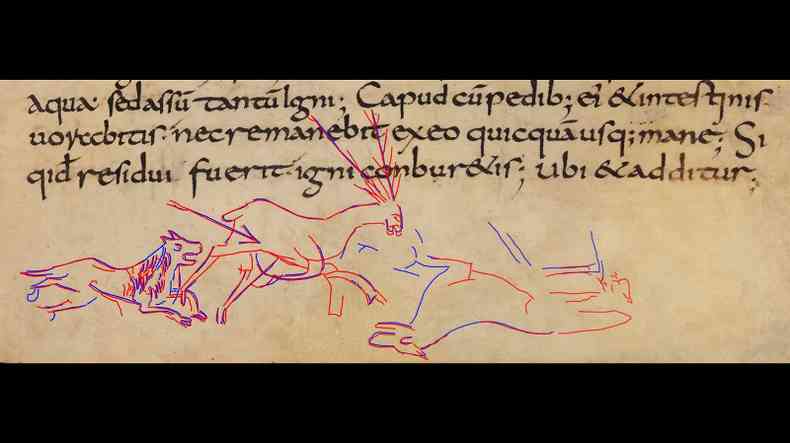 aqua· sed assū tantū Igni; Capud cū pedib; ei' & intestinis
uorabitis· nec remanebit ex eo quicquā usq; mane; Si
qid residui fuerit· igni conbur&is; Ubi & additur;